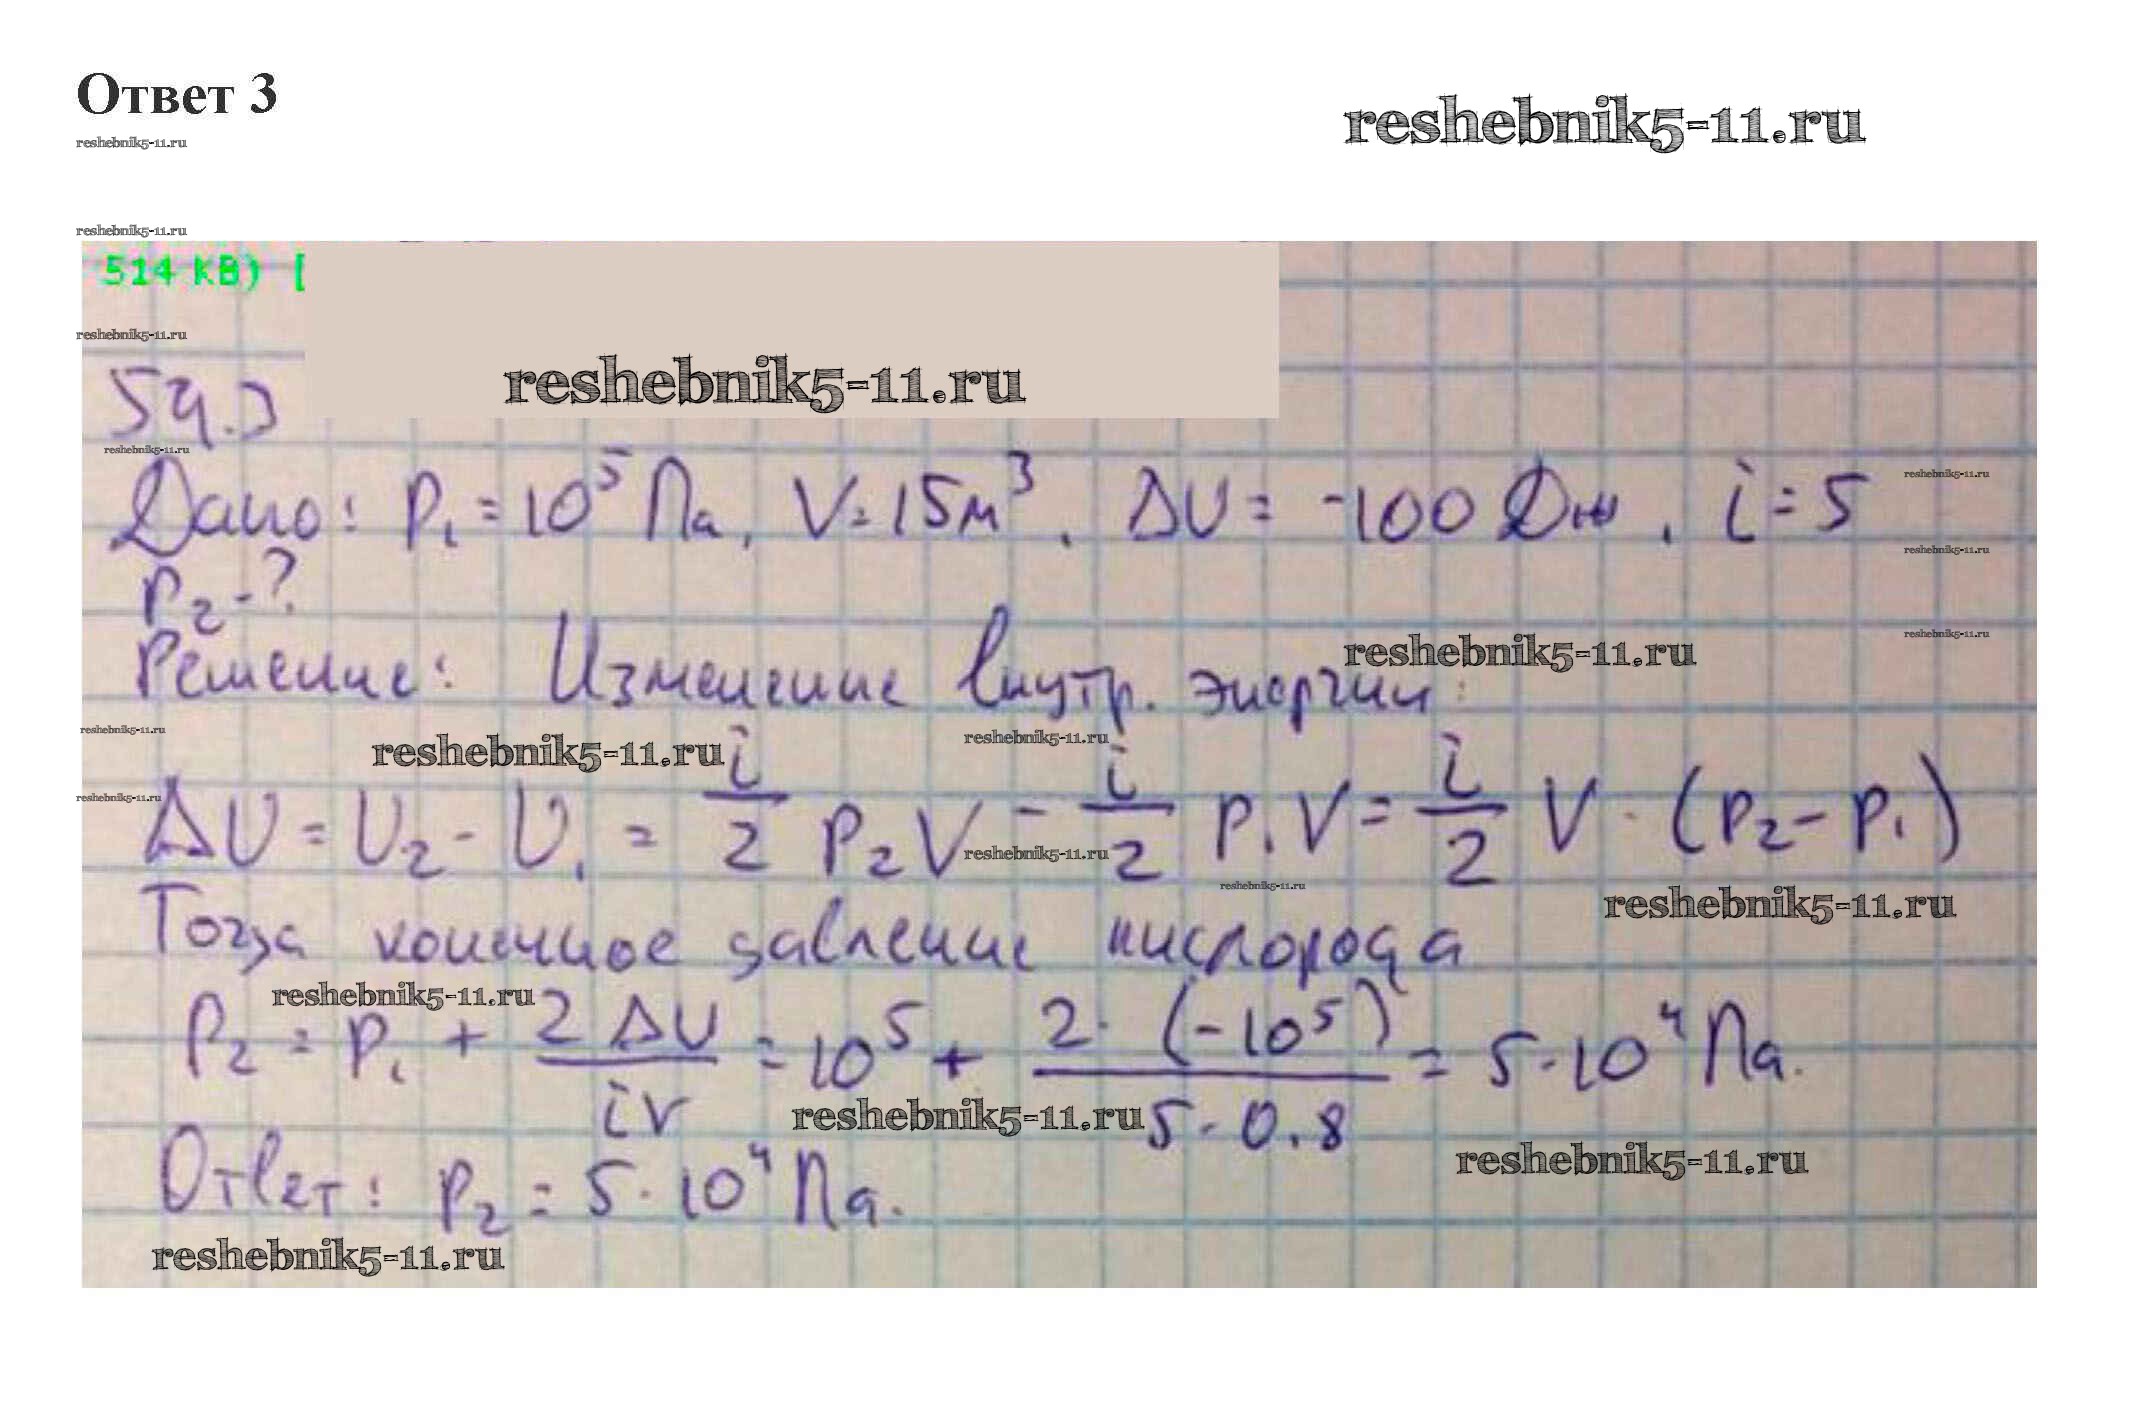 Ответ 3
reshebnik5-11.ru
reshebnik5-11.ru
reshebnik5-11.ru
514 KB) [
reshebnik5-11.ru
reshebnik5-11.ru
54.3
reshebnik5-11.ru
Дано: P₁ = 10⁵ Па, V = 15 м³, ΔU = -100 Дж, i = 5
reshebnik5-11.ru
reshebnik5-11.ru
P₂ - ?
reshebnik5-11.ru
Решение: Изменение внутр. энергии:
reshebnik5-11.ru
reshebnik5-11.ru
reshebnik5-11.ru
reshebnik5-11.ru
reshebnik5-11.ru
ΔU = U₂ - U₁ = i/2 P₂V - i/2 P₁V = i/2 V · (P₂ - P₁)
reshebnik5-11.ru
reshebnik5-11.ru
reshebnik5-11.ru
Тогда конечное давление кислорода
reshebnik5-11.ru
P₂ = P₁ + 2ΔU/iV = 10⁵ + 2·(-10⁵)/5·0.8 = 5·10⁴ Па.
reshebnik5-11.ru
reshebnik5-11.ru
Ответ: P₂ = 5·10⁴ Па.
reshebnik5-11.ru